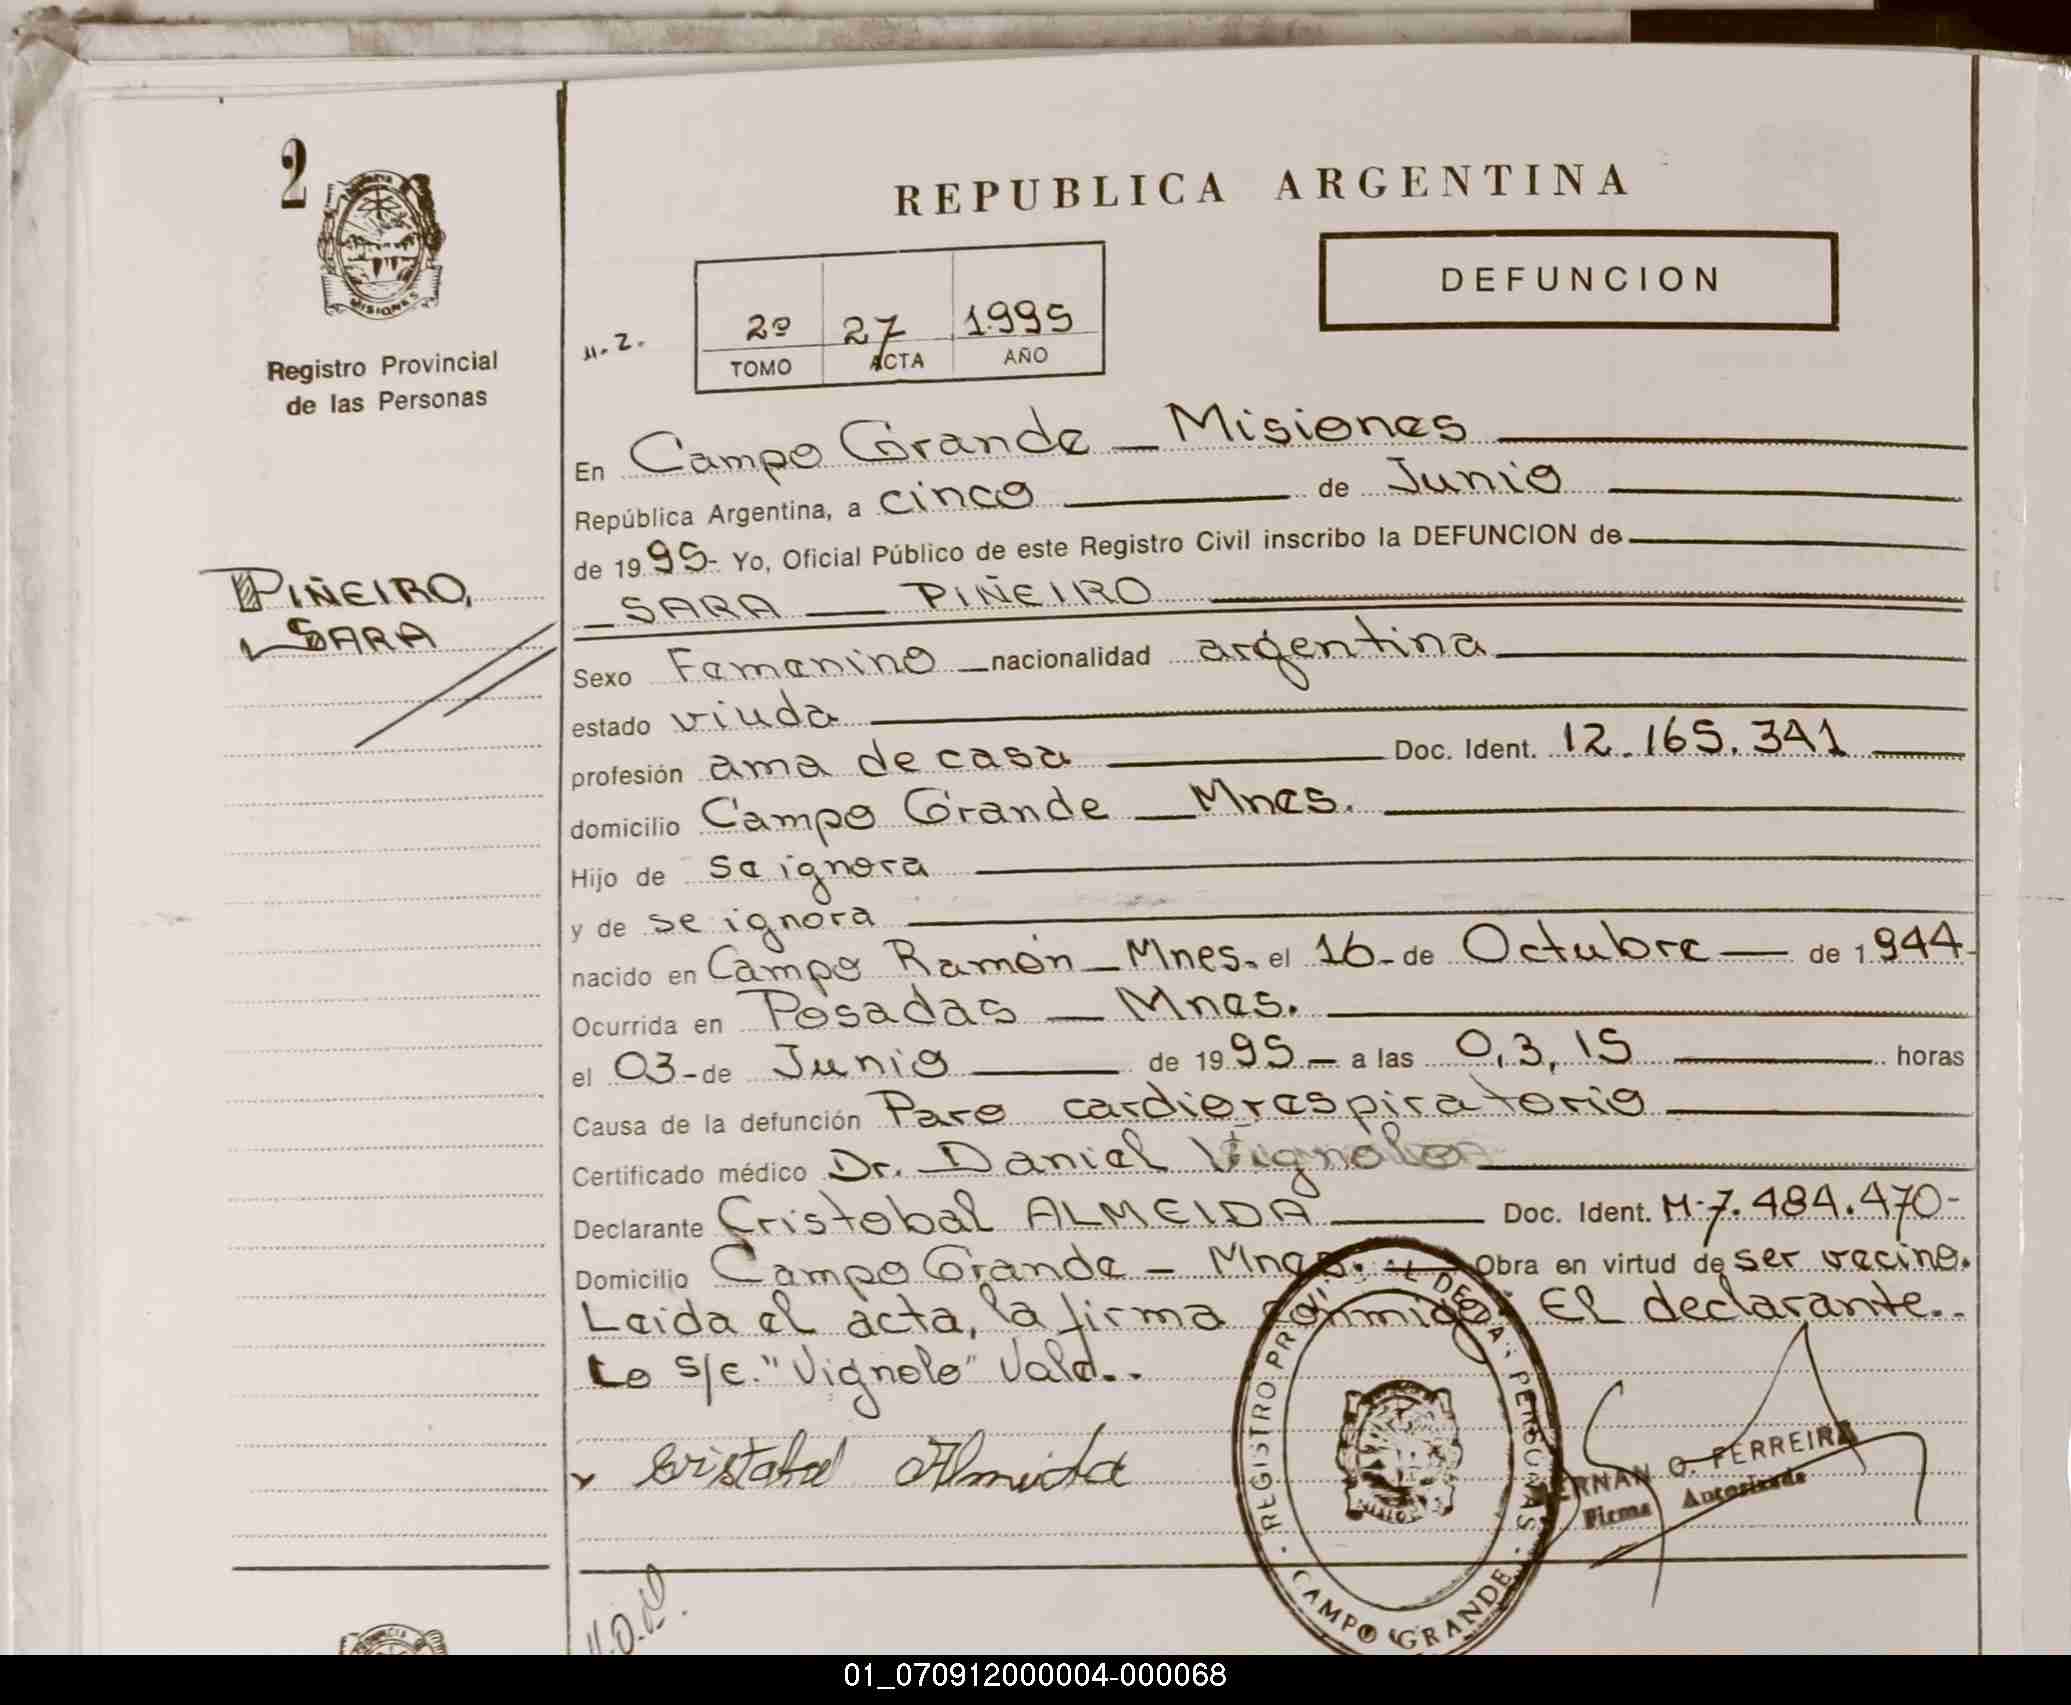 2
MISIONES
Registro Provincial
de las Personas
PIÑEIRO,
SARA
REPUBLICA ARGENTINA
DEFUNCION
2º 27 1.995
TOMO ACTA AÑO
En Campo Grande — Misiones
República Argentina, a cinco de Junio
de 1995- Yo, Oficial Público de este Registro Civil inscribo la DEFUNCION de
SARA — PIÑEIRO
Sexo Femenino nacionalidad argentina
estado viuda
profesión ama de casa Doc. Ident. 12.165.341
domicilio Campo Grande — Mnes.
Hijo de se ignora
y de se ignora
nacido en Campo Ramón — Mnes. el 16- de Octubre — de 1944-
Ocurrida en Posadas — Mnes.
el 03- de Junio de 1995 — a las 0,3,15 horas
Causa de la defunción Paro cardiorespiratorio
Certificado médico Dr. Daniel Vignolo
Declarante Cristobal ALMEIDA Doc. Ident. M-7.484.470-
Domicilio Campo Grande — Mnes. Obra en virtud de ser vecino.
Leida el acta, la firma conmigo: El declarante..
Lo s/e. "Vignolo" Vale..
Cristobal Almeida
REGISTRO PROVINCIAL DE LAS PERSONAS
CAMPO GRANDE
HERNAN O. FERREIRA
Firma Autorizada
01_070912000004-000068